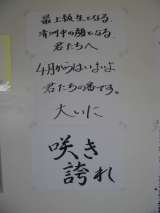 最上級生となる
清河中の顔となる
君たちへ
4月からはいよいよ
君たちの番です。
大いに
咲き
誇れ